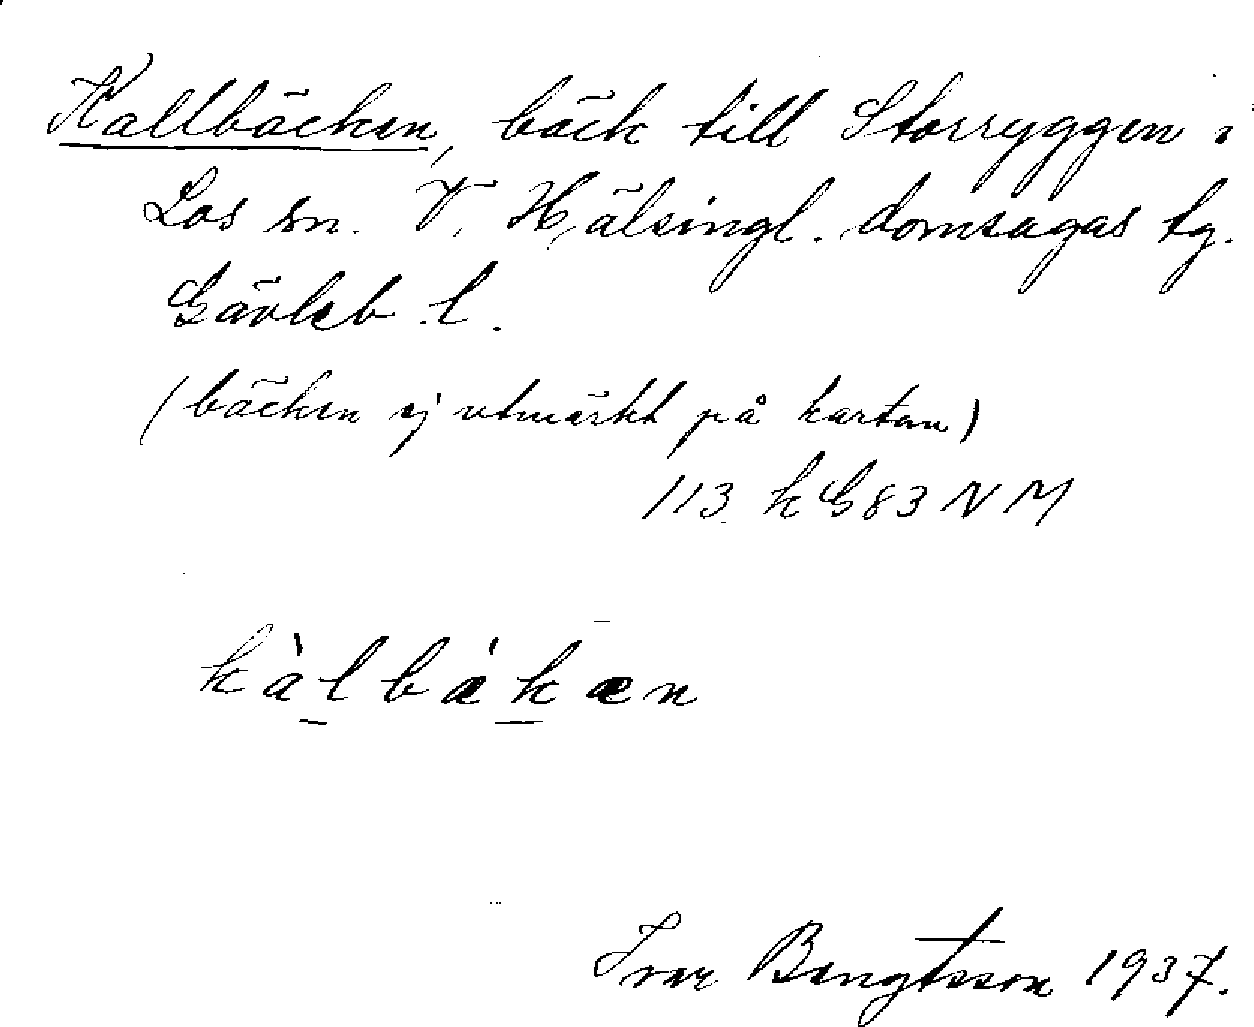 Kallbäcken, bäck till Storryggen i
Los sn. V. Hälsingl. domsagas tg.
Gävleb. l.
(bäcken ej utmärkt på kartan)
113 k G 83 N M
kàlbækæn
Ivar Bengtsson 1937.